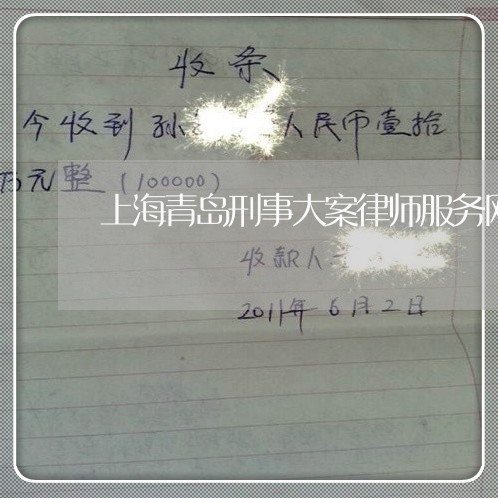 收条
今收到孙 人民币壹拾
万元整(100000)
上海青岛刑事大案律师服务网
收款人
2011年6月2日